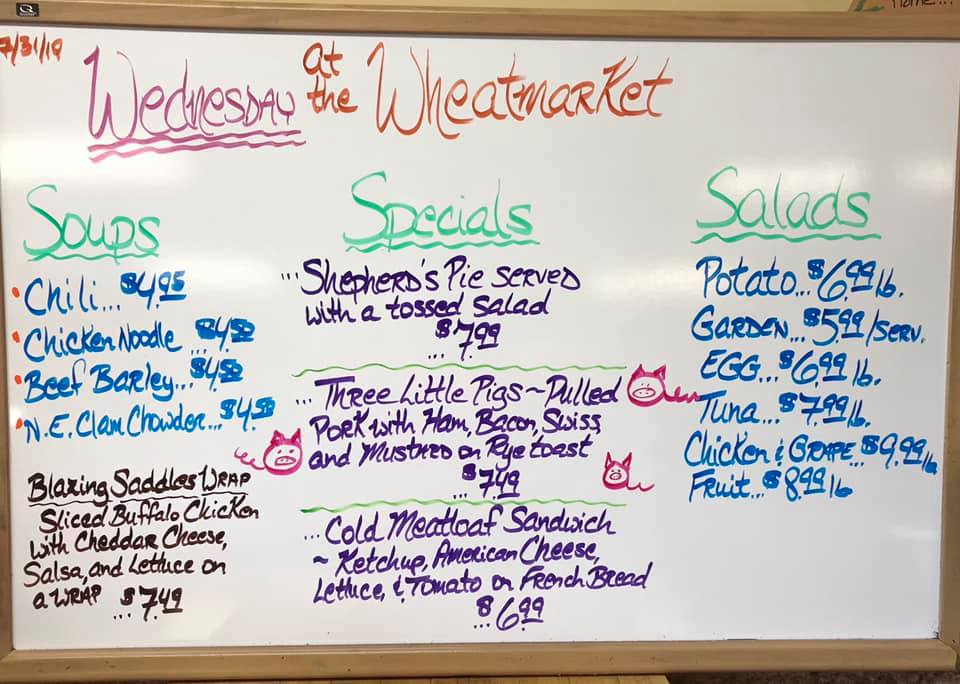 Home...
7/31/19
Wednesday at the Wheatmarket
Soups
Chili... $4.95
Chicken Noodle ... $4.50
Beef Barley... $4.50
N.E. Clam Chowder... $4.50
Blazing Saddles Wrap
Sliced Buffalo Chicken
with Cheddar Cheese,
Salsa, and Lettuce on
a Wrap ... $7.49
Specials
... Shepherd's Pie served
with a tossed salad
... $7.99
... Three Little Pigs ~ Pulled
Pork with Ham, Bacon, Swiss
and Mustred on Rye toast
... $7.49
... Cold Meatloaf Sandwich
~ Ketchup, American Cheese,
Lettuce, & Tomato on French Bread
... $6.99
Salads
Potato... $6.99 lb.
Garden... $5.99/serv.
Egg... $6.99 lb.
Tuna... $7.99 lb.
Chicken & Grape... $9.99 lb
Fruit... $8.99 lb